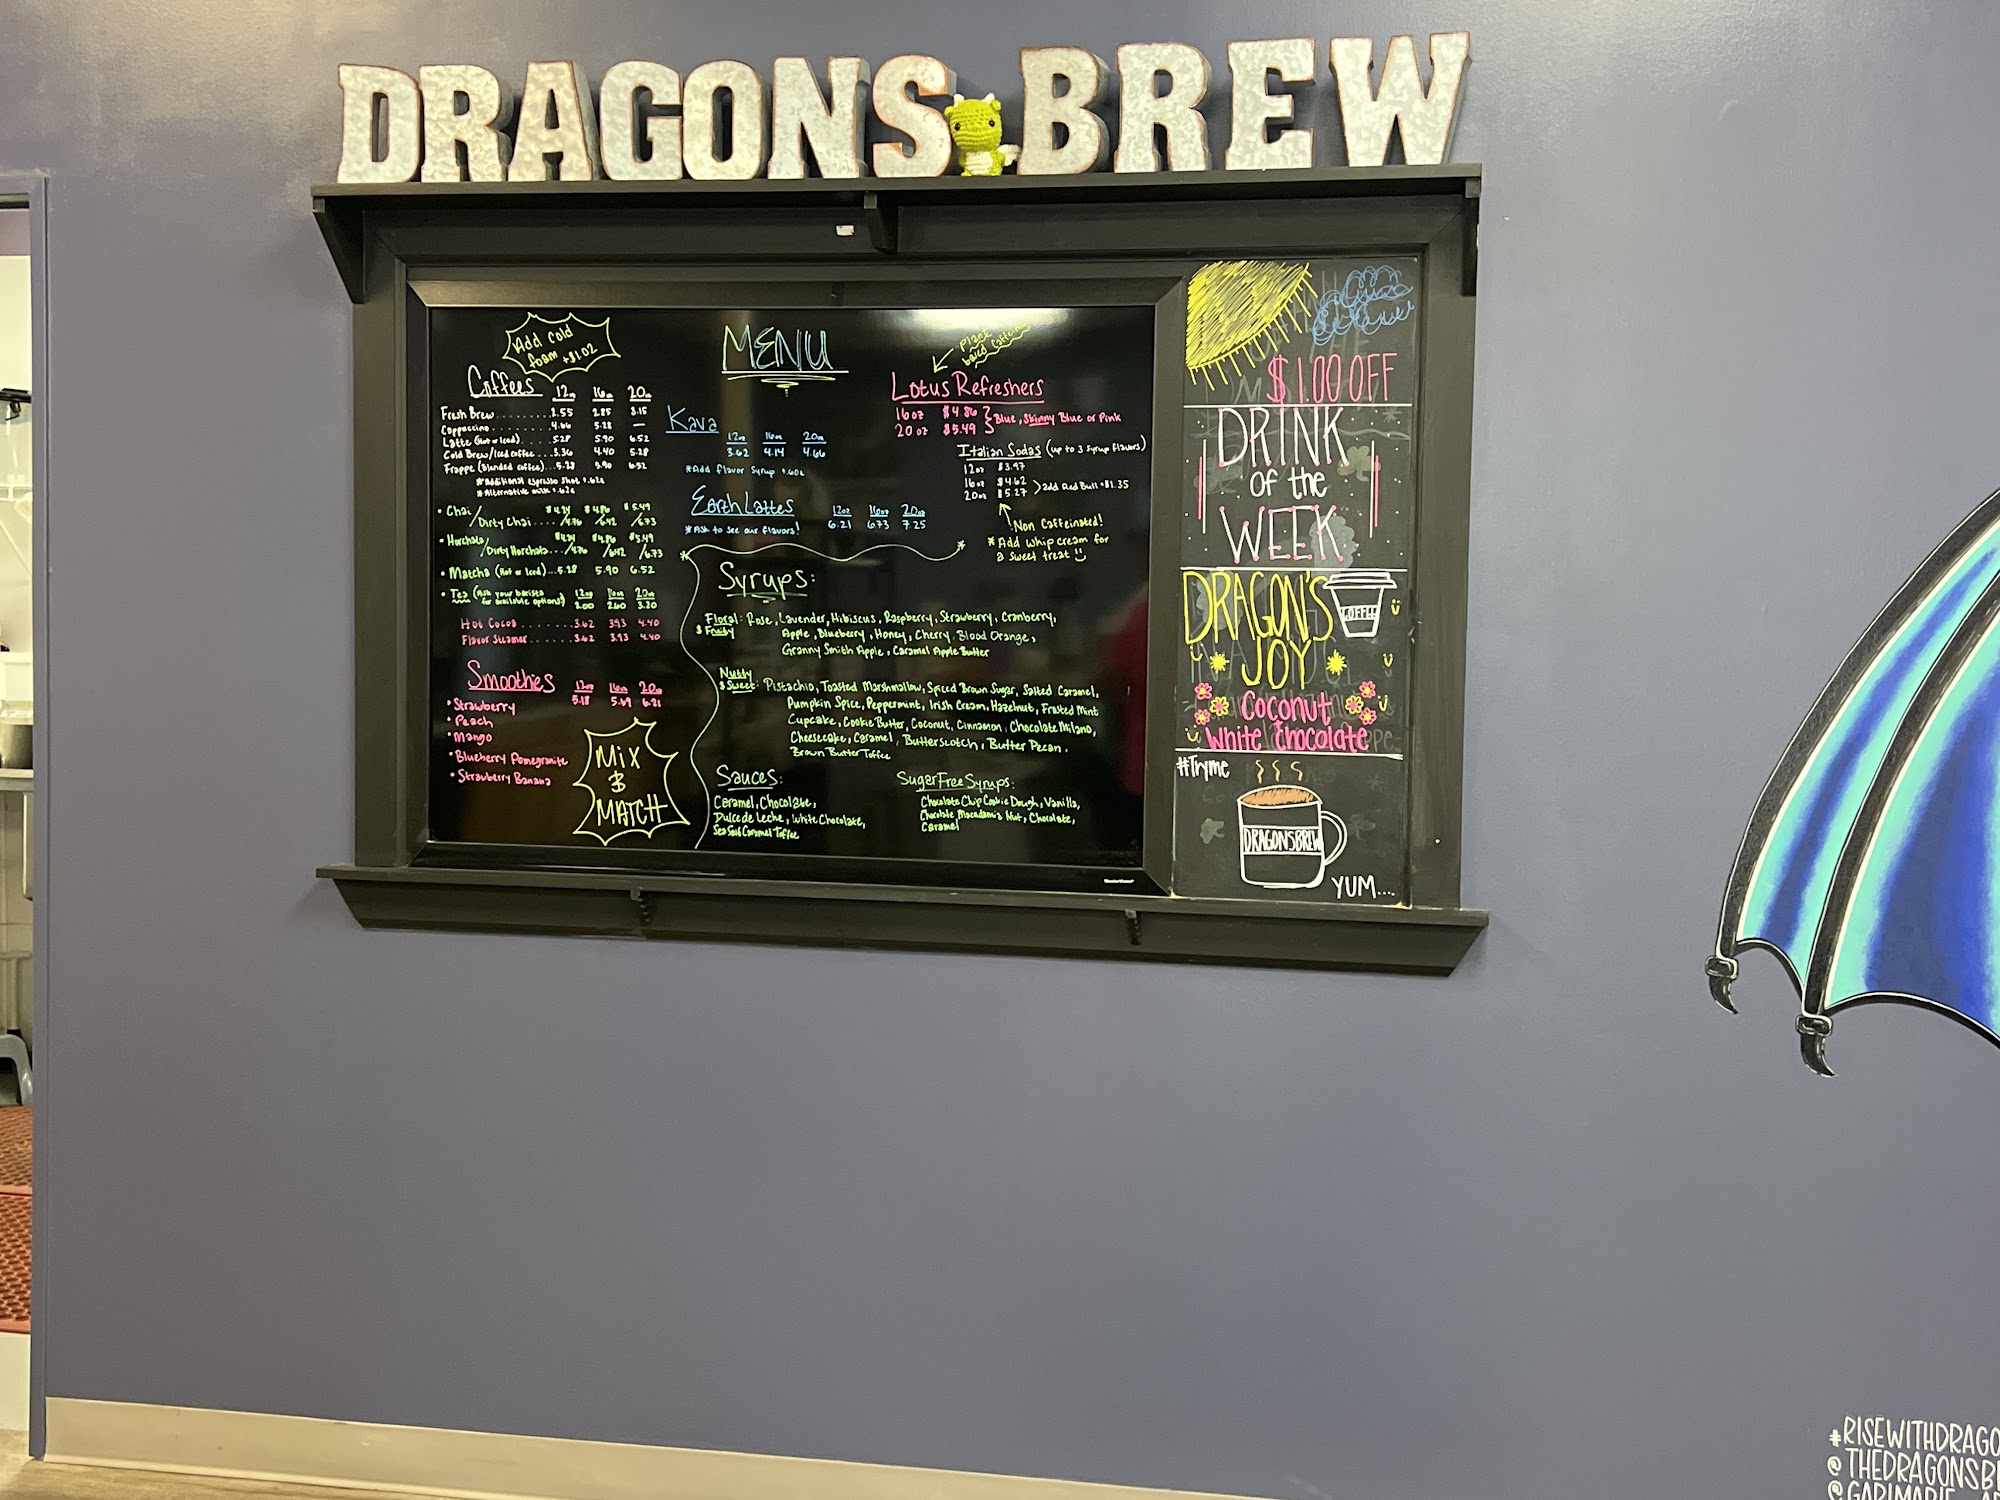 DRAGONS BREW
Add cold
foam +$1.02
MENU
Plant
based caffeine
Coffees 12oz 16oz 20oz
Fresh Brew 2.85 3.15
Cappuccino 4.66 5.28 —
Latte (Hot or Iced) 5.28 5.90 6.52
Cold Brew/Iced coffee 3.36 4.40 5.28
Frappe (Blended coffee) 5.28 5.90 6.52
*Additional espresso shot +.62¢
*Alternative milk +.62¢
• Chai/ $4.24 $4.86 $5.49
Dirty Chai /4.76 /6.42 /6.73
• Horchata/ $4.24 $4.86 $5.49
Dirty Horchata /4.76 /6.42 /6.73
• Matcha (Hot or Iced) 5.28 5.90 6.52
• Tea (Ask your barista 12oz 16oz 20oz
for available options!) 2.00 2.60 3.20
Hot Cocoa 3.62 3.93 4.40
Flavor Steamer 3.62 3.93 4.40
Smoothies 12oz 16oz 20oz
5.18 5.69 6.21
• Strawberry
• Peach
• Mango
• Blueberry Pomegranite
• Strawberry Banana
Mix
&
MATCH
Kava
12oz 16oz 20oz
3.62 4.14 4.66
*Add flavor syrup +.60¢
Earth Lattes 12oz 16oz 20oz
*Ask to see our flavors! 6.21 6.73 7.25
Lotus Refreshers
16oz $4.86 Blue, Skinny Blue or Pink
20oz $5.49
Italian Sodas (up to 3 syrup flavors)
12oz $3.97
16oz $4.62 add Red Bull +$1.35
20oz $5.27
Non Caffeinated!
* Add whip cream for
a sweet treat
Syrups:
Floral: Rose, Lavender, Hibiscus, Raspberry, Strawberry, Cranberry,
& Fruity Apple, Blueberry, Honey, Cherry, Blood Orange,
Granny Smith Apple, Caramel Apple Butter
Nutty
& Sweet: Pistachio, Toasted Marshmallow, Spiced Brown Sugar, Salted Caramel,
Pumpkin Spice, Peppermint, Irish Cream, Hazelnut, Frosted Mint
Cupcake, Cookie Butter, Coconut, Cinnamon, Chocolate Milano,
Cheesecake, Caramel, Butterscotch, Butter Pecan,
Brown Butter Toffee
Sauces:
Caramel, Chocolate,
Dulce de Leche, White Chocolate,
Sea Salt Caramel Toffee
Sugar Free Syrups:
Chocolate Chip Cookie Dough, Vanilla,
Chocolate Macadamia Nut, Chocolate,
Caramel
$1.00 OFF
DRINK
of the
WEEK
DRAGON'S
COFFEE
JOY
Coconut
White Chocolate
#Tryme
DRAGONSBREW
YUM....
#RISEWITHDRAGO
@THEDRAGONSB